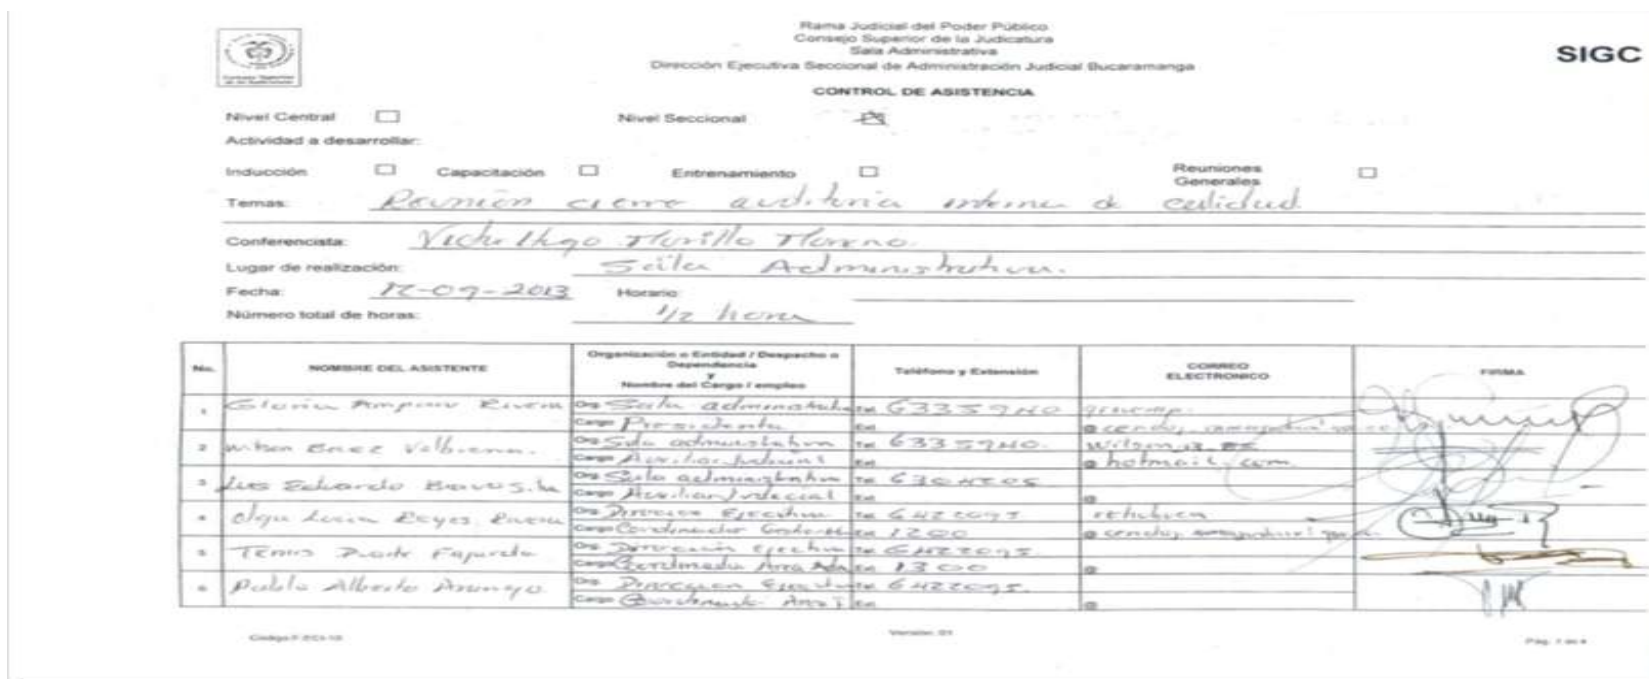 Rama Judicial del Poder Público
Consejo Superior de la Judicatura
Sala Administrativa
Dirección Ejecutiva Seccional de Administración Judicial Bucaramanga
SIGC
Consejo Superior de la Judicatura
CONTROL DE ASISTENCIA
Nivel Central Nivel Seccional
Actividad a desarrollar:
Inducción Capacitación Entrenamiento Reuniones Generales
Temas: Reunión cierre auditoria interna de calidad
Conferencista: Victor Hugo Morillo Moreno.
Lugar de realización: Sala Administrativa.
Fecha: 12-09-2013 Horario:
Número total de horas: 1/2 hora
No. NOMBRE DEL ASISTENTE Organización o Entidad / Despacho o Dependencia y Nombre del Cargo / empleo Teléfono y Extensión CORREO ELECTRONICO FIRMA
1 Gloria Amparo Rivera Org. Sala administrativa Tel. 6335940
Cargo Presidenta Ext. @cendoj.
2 Wilson Org. Sala administrativa Tel. 6335940.
Cargo Auxiliar Judicial Ext. @hotmail.com
3 Luis Eduardo Org. Sala administrativa Tel.
Cargo Auxiliar Judicial Ext. @
4 Olga Lucia Reyes Rivera Org. Direccion Ejecutiva Tel. 6422095
Cargo Coordinador Ext. 1200 @cendoj.
5 Duarte Fajardo Org. Dirección Ejecutiva Tel. 6422095.
Cargo Coordinador Area Ext. 1300 @
6 Pablo Alberto Org. Direccion Ejecutiva Tel. 6422095.
Cargo Coordinador Area Ext. @
Versión: 01